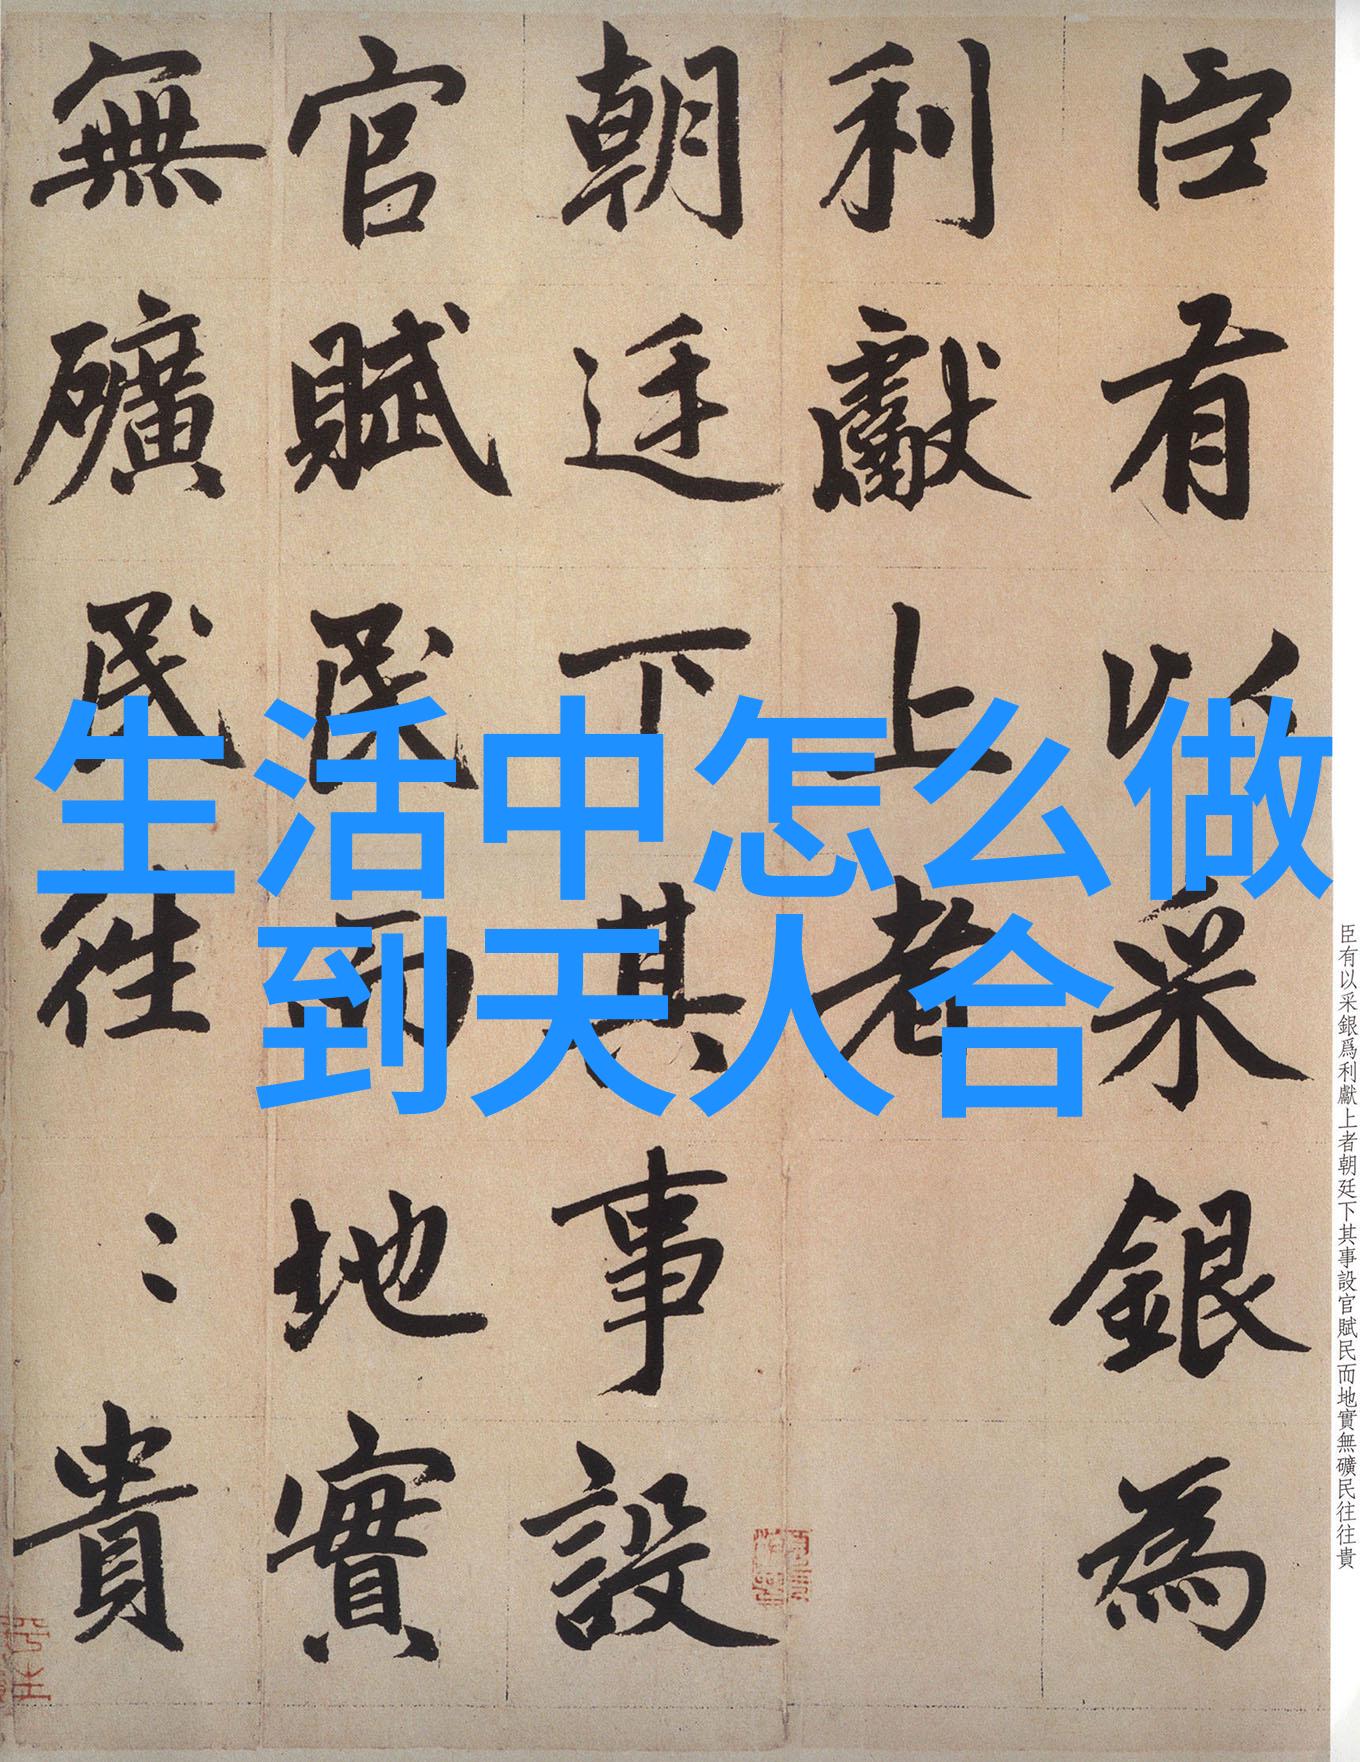 生活中怎么做
到天人合
臣有以采銀為
利獻上者
朝廷下其事設
官賦民而地實
無礦民往〻貴
臣有以采銀爲利獻上者朝廷下其事設官賦民而地實無礦民往往貴